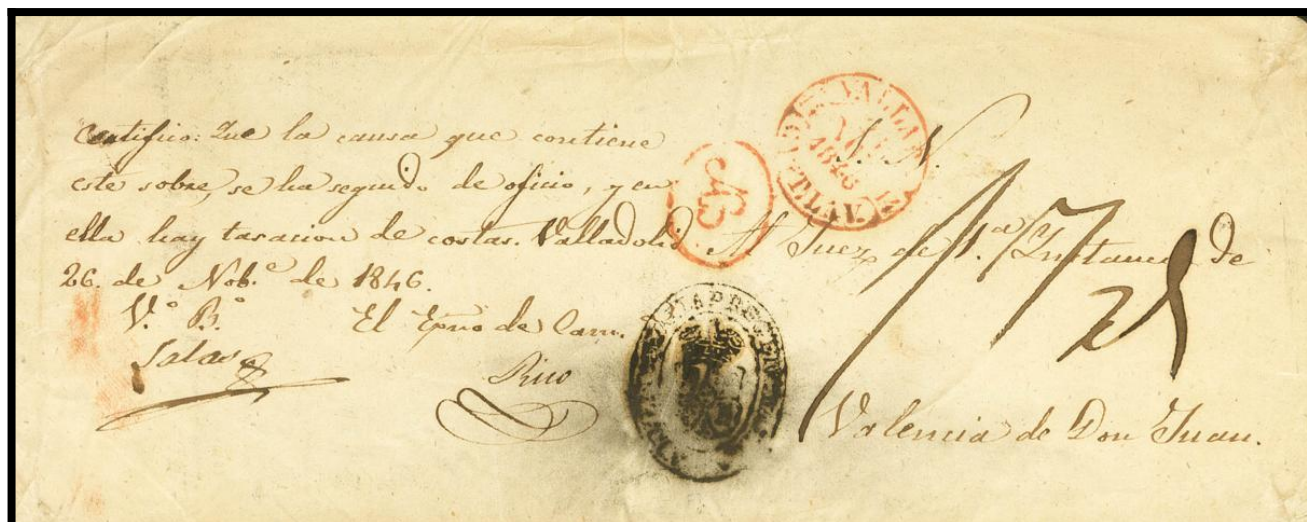 Certifico: Que la causa que contiene
este sobre, se ha seguido de oficio, y en
ella hay tasacion de costas. Valladolid
26. de Nob.e de 1846.
V.o B.o El Esno de Cam.
Salas
Rico
S. N.
Al Juez de 1.a Instancia de
Valencia de Don Juan.
1846